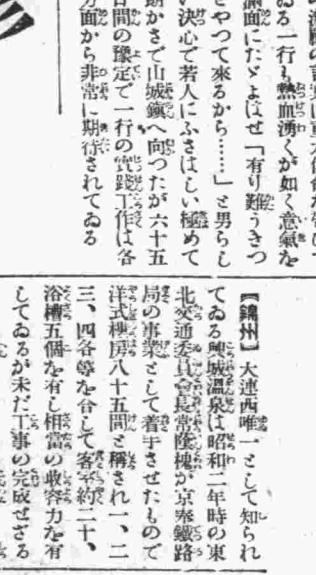 ゐる一行も熱血湧くが如く意氣を
滿面にたゞよはせ「有り難うきつ
とやつて來るから……」と男らし
い決心で若人にふさはしい極めて
朗かさで山城鎭へ向つたが六十五
日間の豫定で一行の實踐工作は各
方面から非常に期待されてゐる
【錦州】大連西唯一として知られ
てゐる興城溫泉は昭和二年時の東
北交通委員會長常蔭槐が京奉鐵路
局の事業として着手させたもので
洋式樓房八十五間と稱され一、二
三、四各等を合して客室約二十、
浴槽五個を有し相當の收容力を有
してゐるが未だ工事の完成せざる